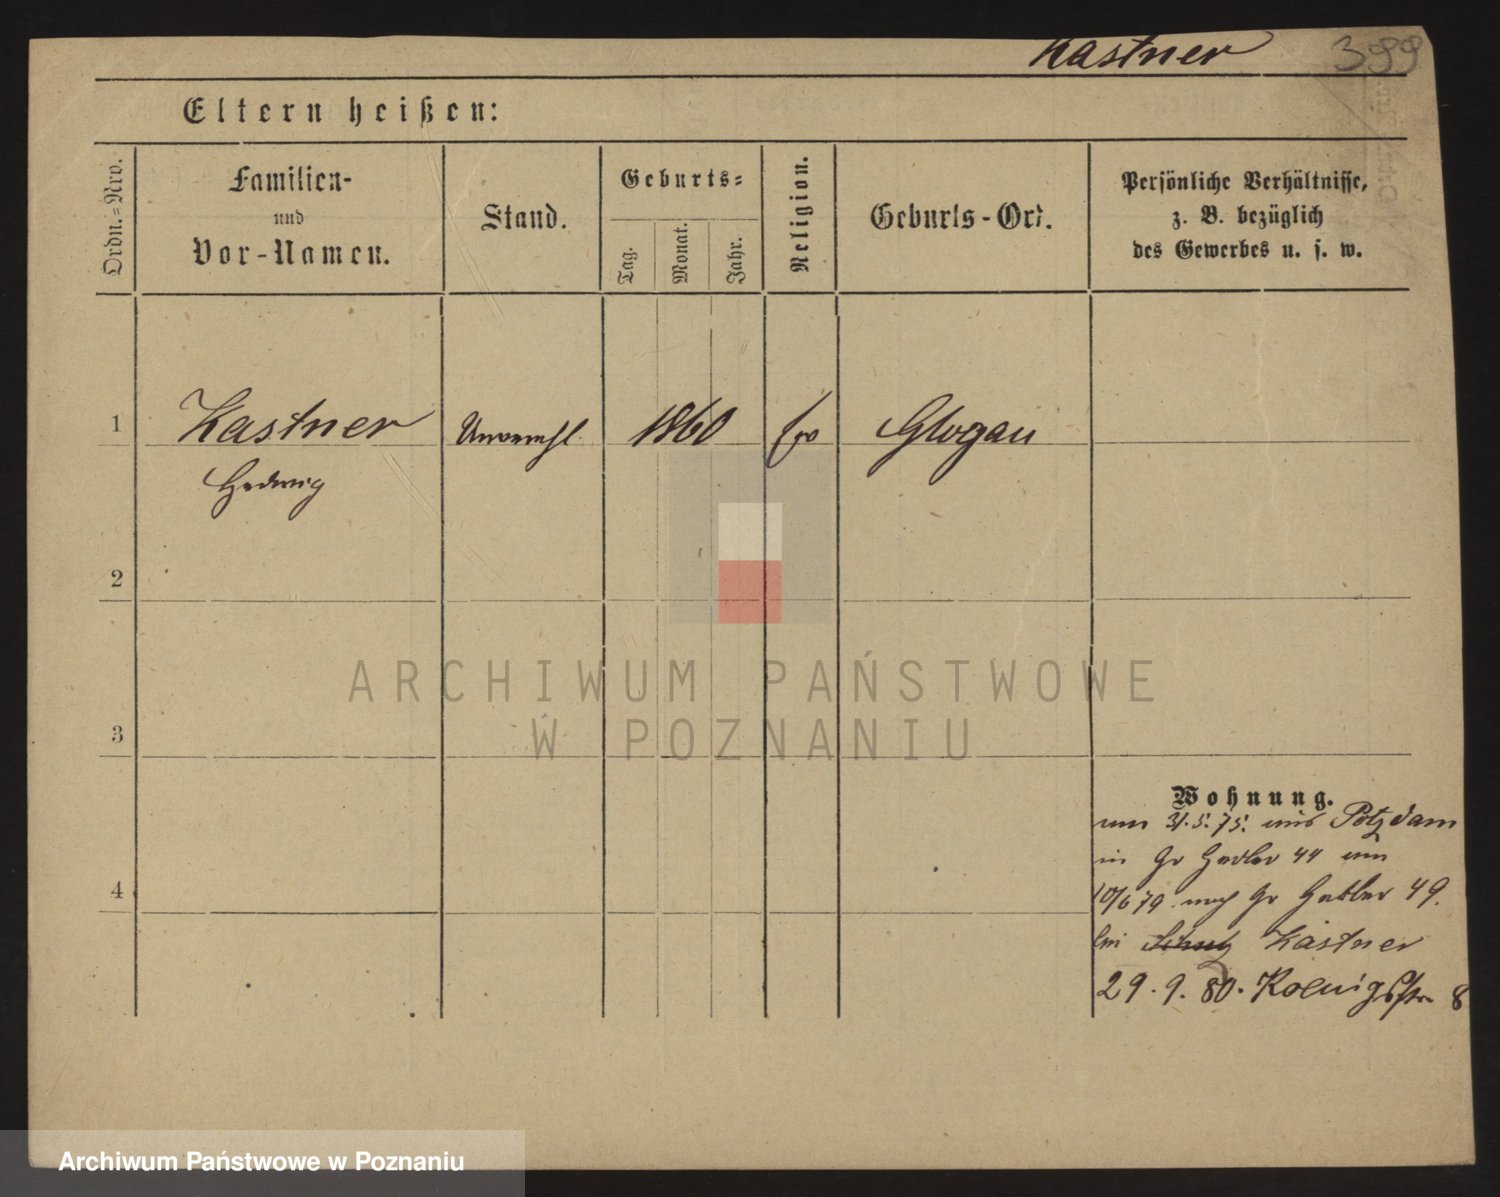 Kastner 399
Eltern heißen:
Ordn.=Nro.
Familien-
und
Vor-Namen.
Stand.
Geburts=
Tag.
Monat.
Jahr.
Religion.
Geburts-Ort.
Persönliche Verhältnisse,
z. B. bezüglich
des Gewerbes u. s. w.
1 Kastner Unverehl. 1860 Glogau
Hedwig
2
3
4
ARCHIWUM PAŃSTWOWE
W POZNANIU
Wohnung.
31.5.75. aus Potzdam
in Gr Gerber 44
10/6 79 nach Gr Gerber 49.
bei Kastner
29.9.80. Koenigsstr 8
Archiwum Państwowe w Poznaniu